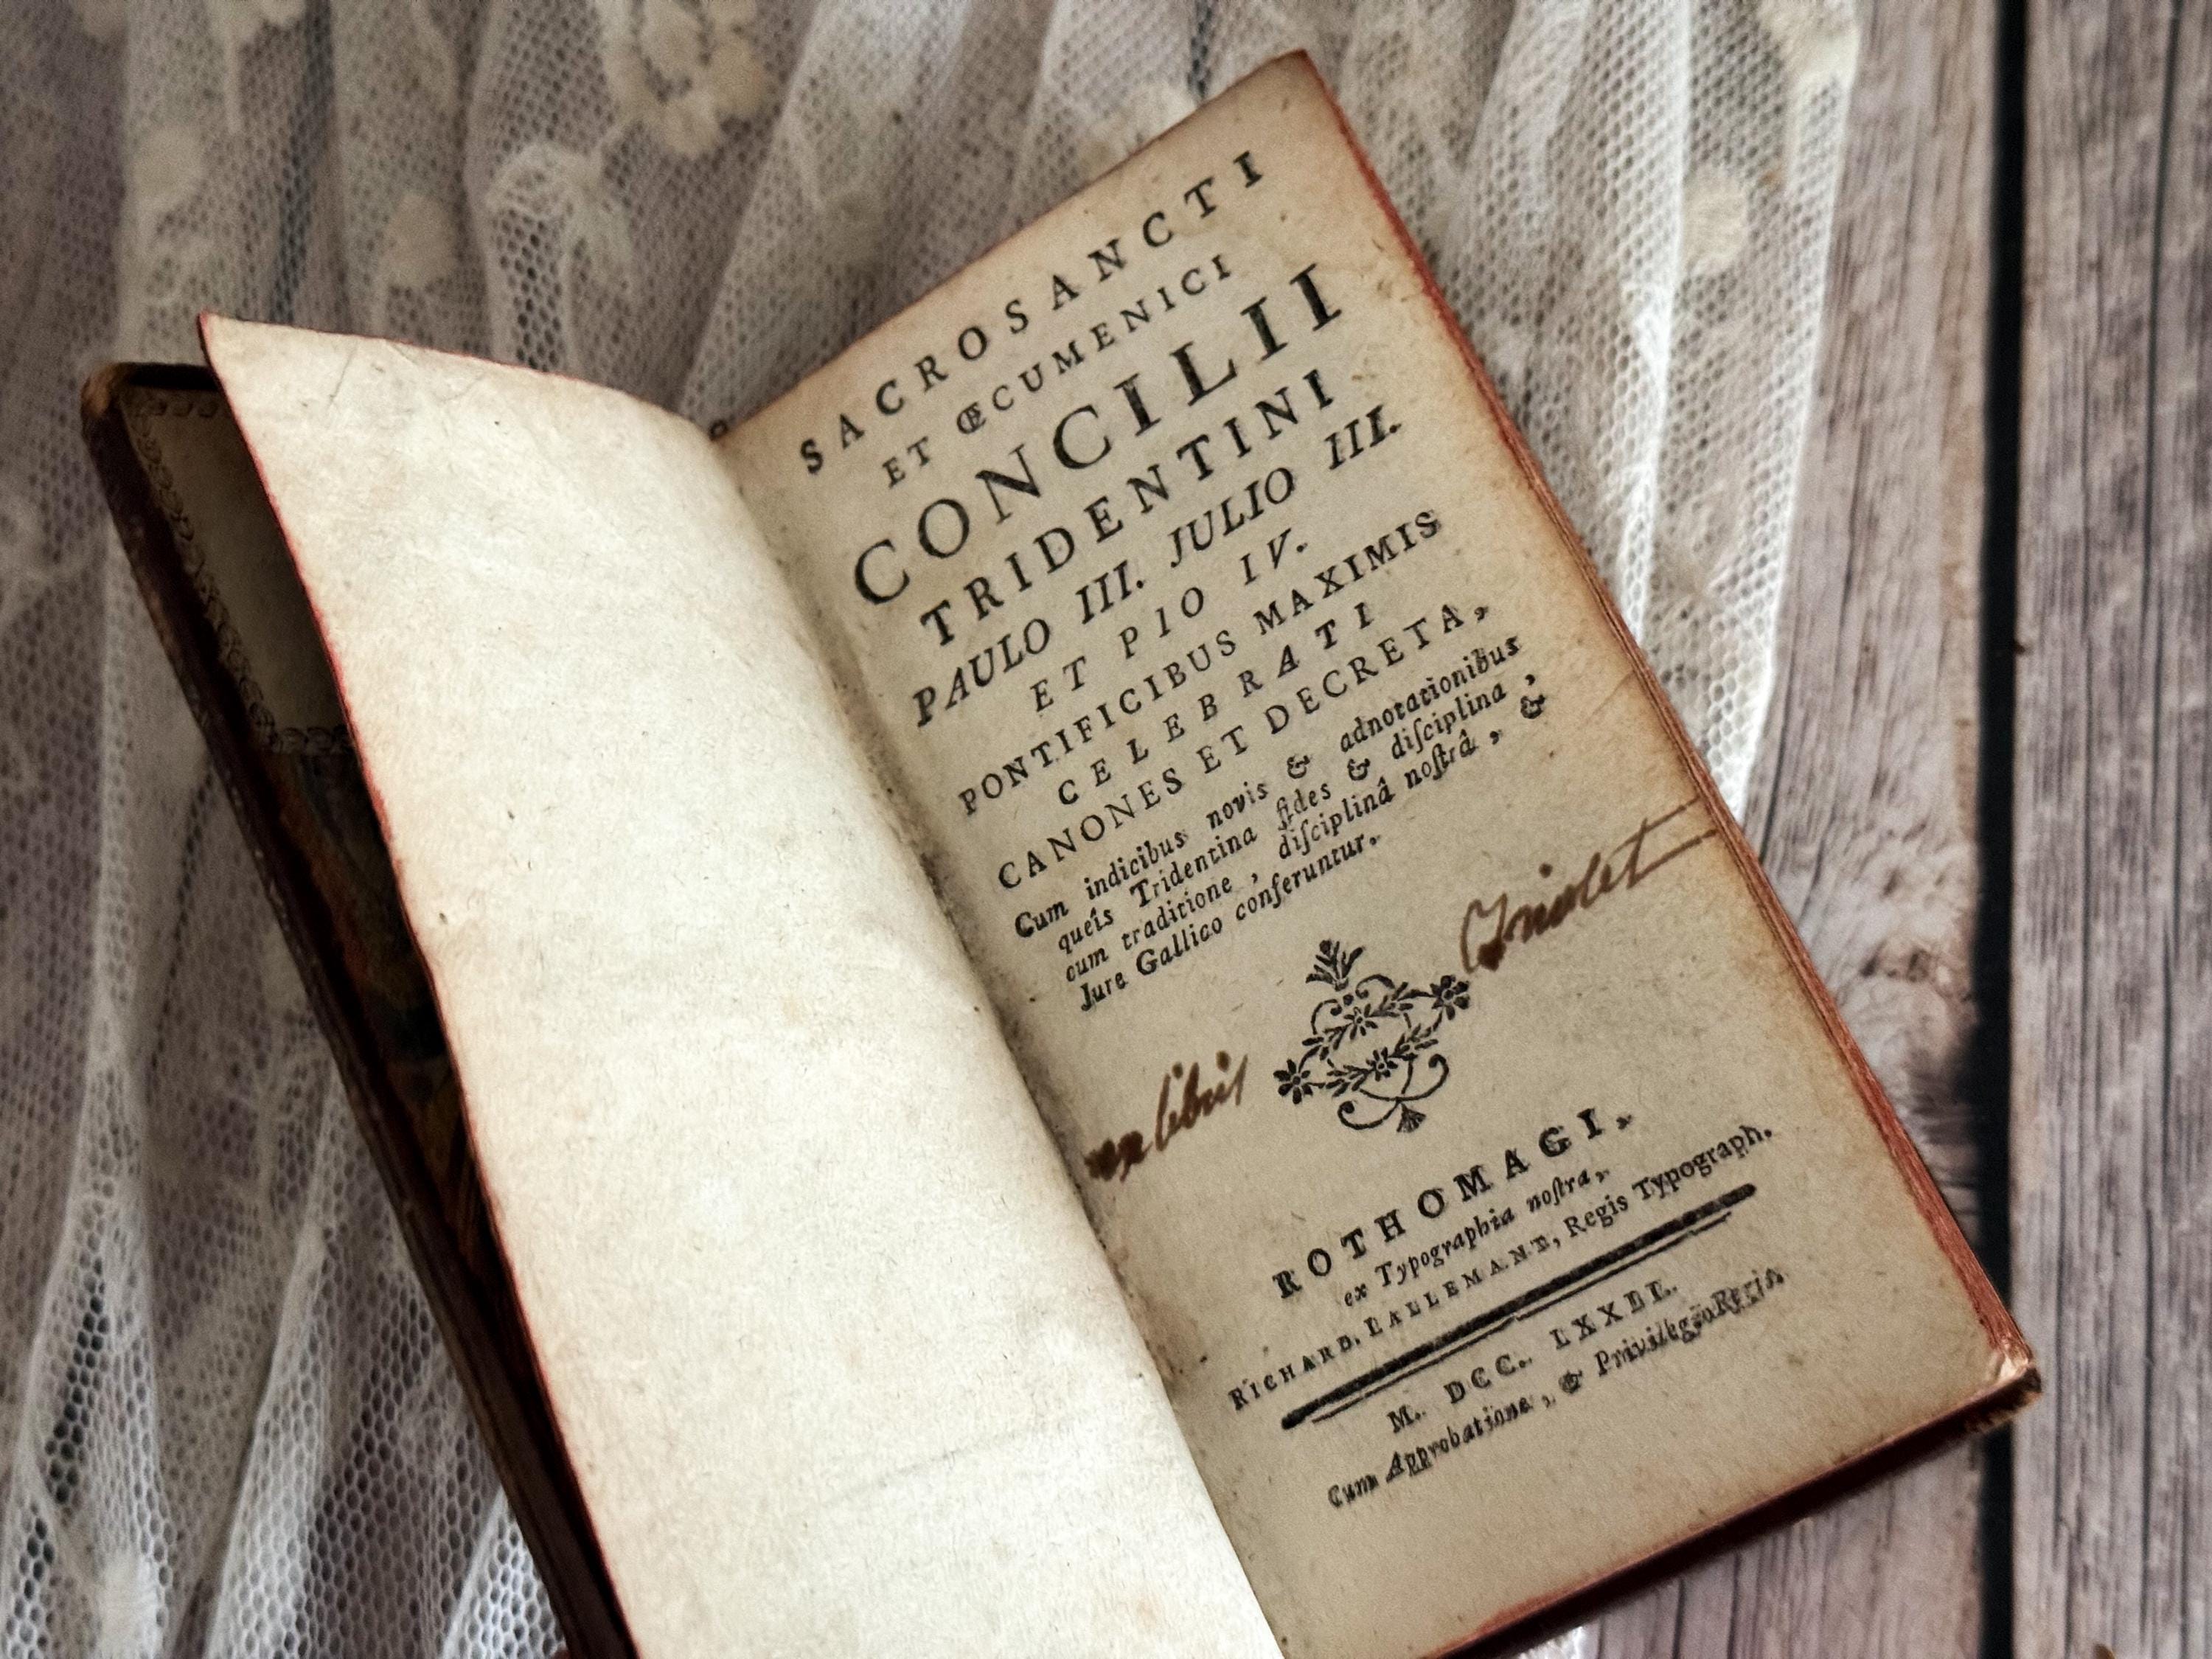 SACROSANCTI
ET ŒCUMENICI
CONCILII
TRIDENTINI
PAULO III. JULIO III.
ET PIO IV.
PONTIFICIBUS MAXIMIS
CELEBRATI
CANONES ET DECRETA,
Cum indicibus novis & adnotationibus
queîs Tridentina fides & diſciplina,
cum traditione, diſciplinâ noſtrâ, &
Jure Gallico conferuntur.
ex libris
ROTHOMAGI,
ex Typographia noſtra,
RICHARD. LALLEMANT, Regis Typograph.
M. DCC.
Cum Approbatione, & Privilegio Regis